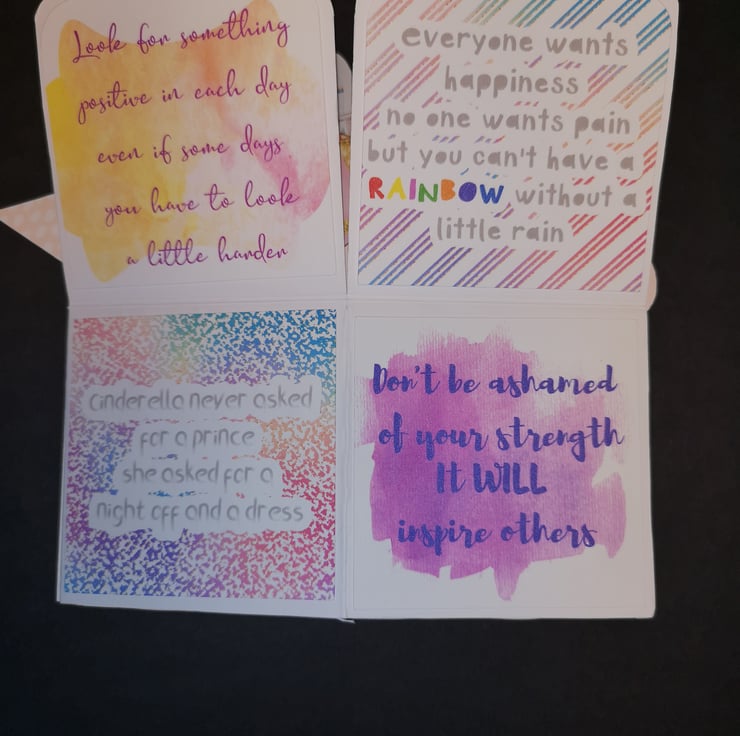 Look for something
positive in each day
even if some days
you have to look
a little harder
everyone wants
happiness
no one wants pain
but you can't have a
RAINBOW without a
little rain
cinderella never asked
for a prince
she asked for a
night off and a dress
Don't be ashamed
of your strength
It WILL
inspire others